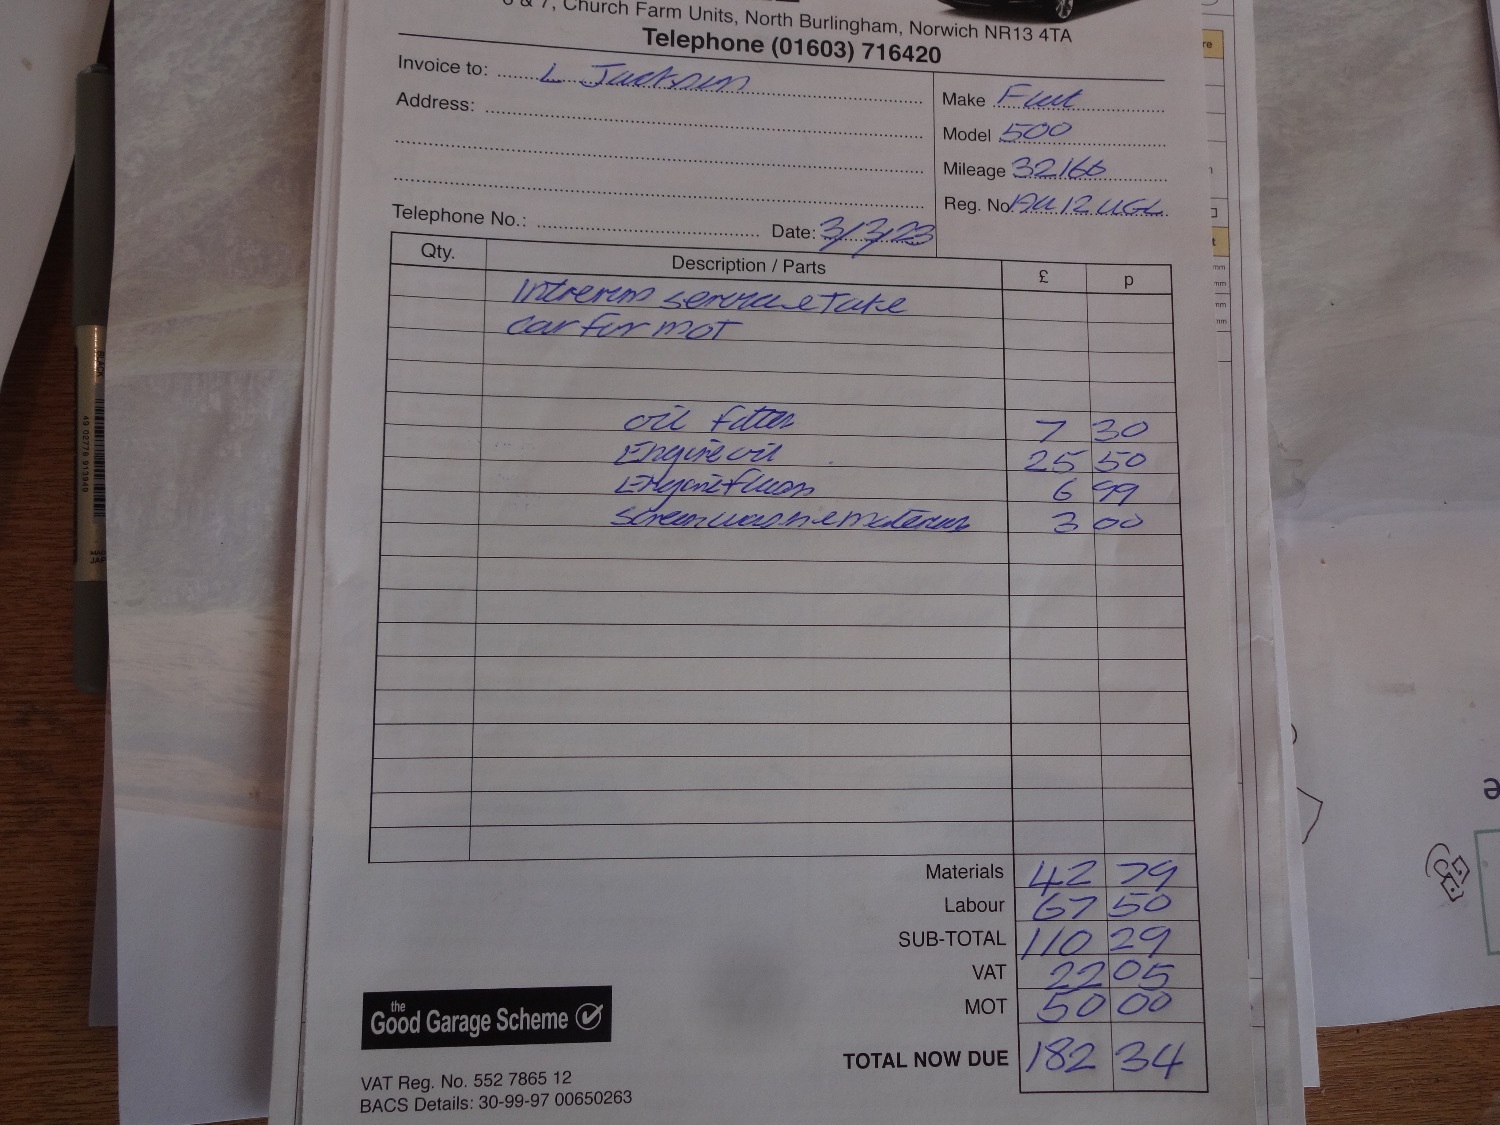 & 7, Church Farm Units, North Burlingham, Norwich NR13 4TA
Telephone (01603) 716420
Invoice to: L Jackson
Address:
Make Fiat
Model 500
Mileage 32166
Reg. No AU12 UGL
Telephone No.: Date: 3/3/23
Qty. Description / Parts £ p
Interem service take
car for mot
oil filter 7 30
Engine oil 25 50
Engine flush 6 99
screen wash e materials 3 00
Materials 42 79
Labour 67 50
SUB-TOTAL 110 29
VAT 22 05
MOT 50 00
TOTAL NOW DUE 182 34
the
Good Garage Scheme
VAT Reg. No. 552 7865 12
BACS Details: 30-99-97 00650263
BLACK
49 02778 913940